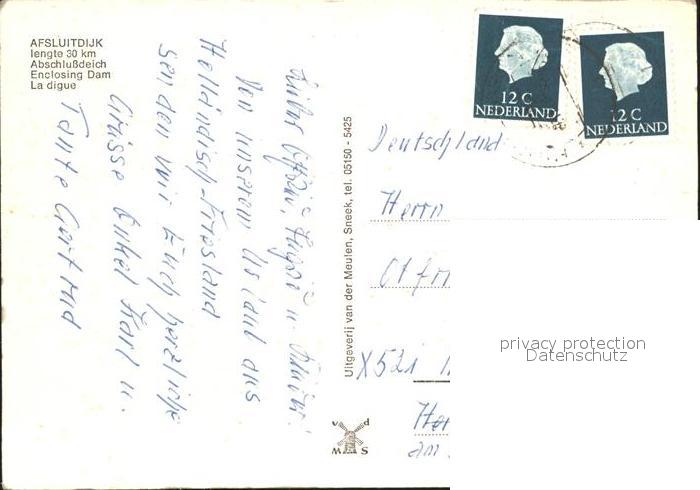 AFSLUITDIJK
lengte 30 km
Abschlußdeich
Enclosing Dam
La digue
Liebe
u.
Von unserem Urlaub aus
Holländisch-Friesland
senden wir Euch herzliche
Grüsse Onkel Karl u.
Tante Gertrud
Uitgeverij van der Meulen, Sneek, tel. 05150 - 5425
12 C
NEDERLAND
12 C
NEDERLAND
Deutschland
Herrn
Otfr
X521
am
v d
M S
privacy protection
Datenschutz